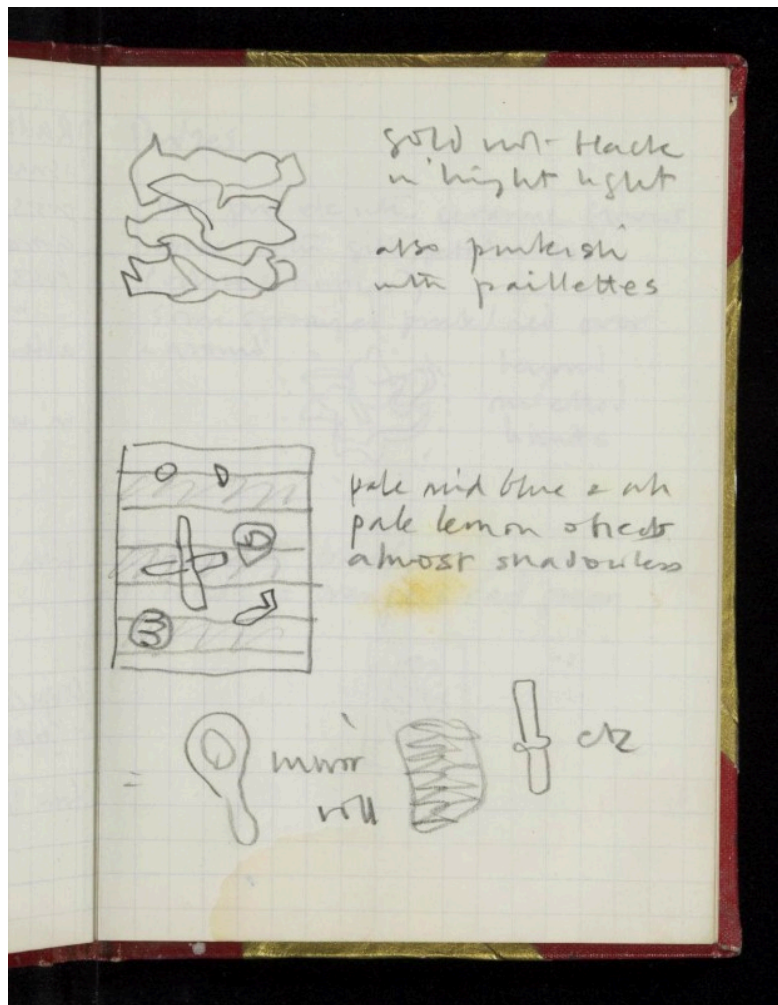 gold not black
in bright light
also pinkish
with paillettes
pale mid blue & wh
pale lemon objects
almost shadowless
= mirror
roll
etc